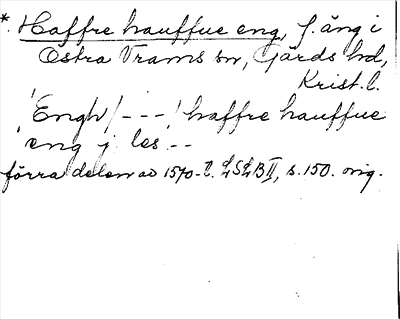 *. Haffre hauffue eng, f. äng i
Östra Vrams sn, Gärds hd,
Krist. l.
'Engh / - - - / haffre hauffue
eng j les - -'
förra delen av 1570-t. LSLB II, s. 150. orig.